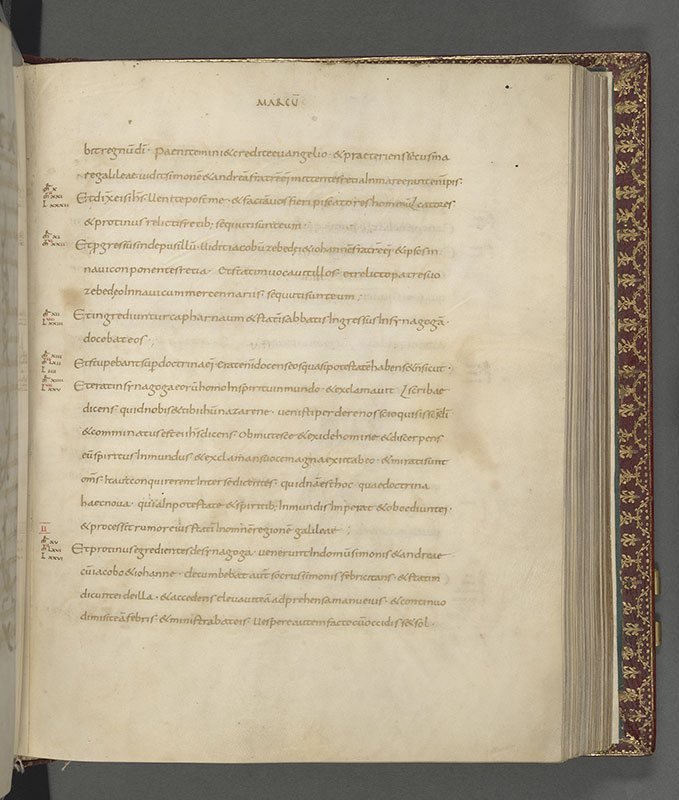 MARCŪ
bit regnū dī · Paenitemini & credite euangelio · & praeteriens secus ma
re galileae uidit simonē & andreā fratrē eius mittentes retia In mare erant enim pis
Et dixit eis ihs Uenite post me · & faciā uos fieri piscatores hominū catores
& protinus relictis retib; secuti sunt eum
Et progressus inde pusillū · Uidit iacobū zebedei & iohannē fratrē eius · & ipsos in
naui conponentes retia · Et statim uocauit illos · et relicto patre suo
zebedeo In naui cum mercennariis · secuti sunt eum ·
Et ingrediuntur capharnaum & statī sabbatis Ingressus In synagogā ·
docebat eos ·
Et stupebant sup doctrina eius erat enī docens eos quasi potestatē habens & n sicut ·
Et erat in synagoga eorū homo In spiritu inmundo · & exclamauit scribae
dicens · quid nobis & tibi ihū nazarene · uenisti perdere nos scio qui sis scs dī
& comminatus est ei ihs dicens · Obmutesce & exi de homine · & discerpens
eū spiritus Inmundus · & exclamans uoce magna exiit ab eo · & mirati sunt
oms · Ita ut conquirerent Inter se dicentes · quidnā est hoc · quae doctrina
haec noua · quia In potestate & spiritib; Inmundis Imperat & oboediunt ei ·
& processit rumor eius statī In omnē regionē galileae ;
II
Et protinus egredientes de synagoga · uenerunt In domū simonis & andreae
cū iacobo & iohanne · decumbebat aut socrus simonis febricitans · & statim
dicunt ei de illa · & accedens eleuauit eā adprehensa manu eius · & continuo
dimisit eā febris · & ministrabat eis Uespere autem facto cū occidiss& sol ·